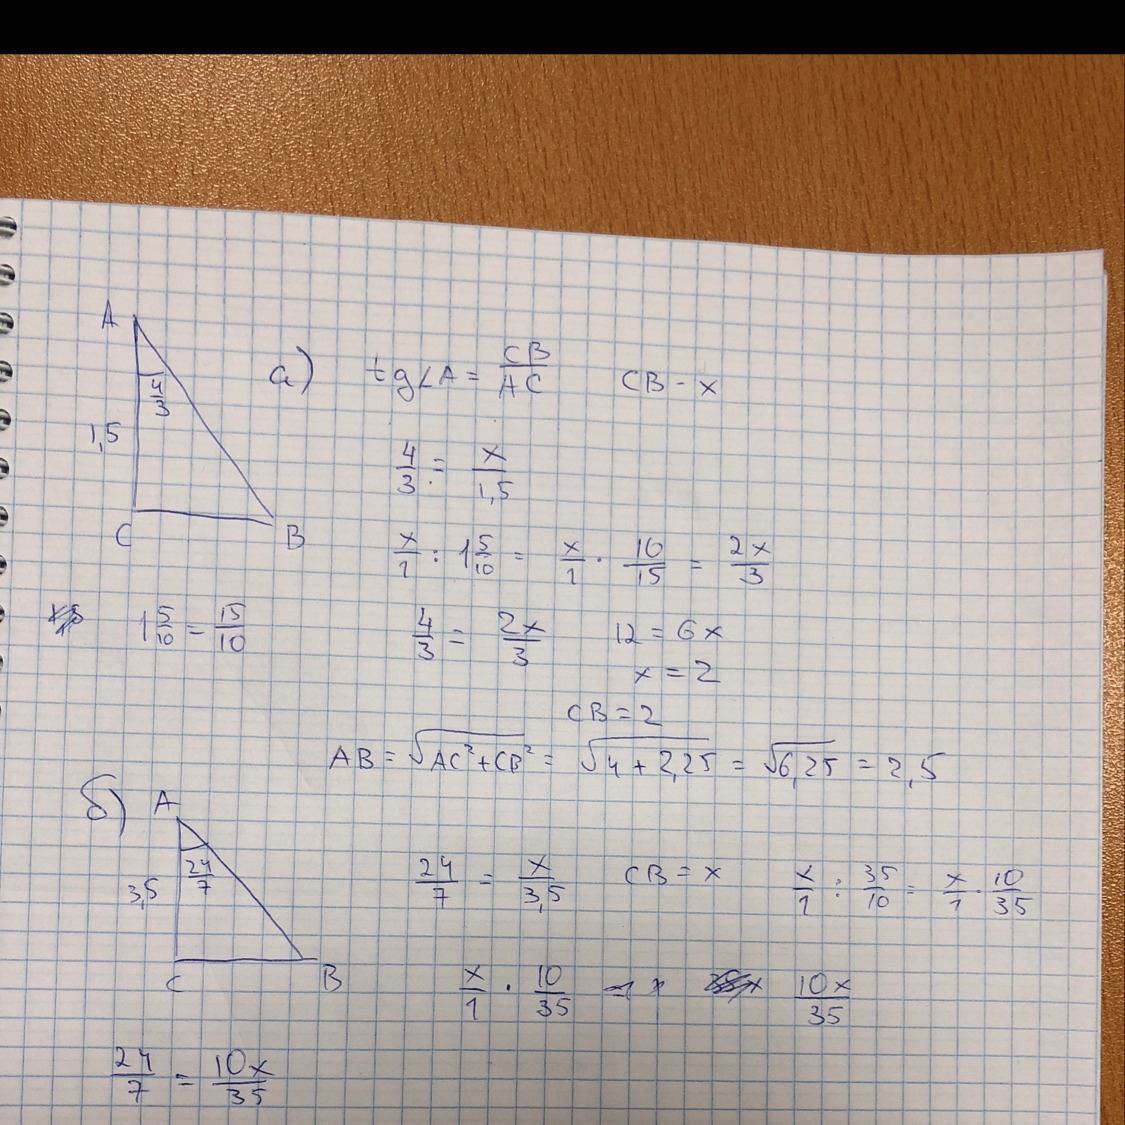 A
4/3
1,5
C B
а) tg∠A = CB/AC CB - x
4/3 = x/1,5
x/1 : 1 5/10 = x/1 · 10/15 = 2x/3
1 5/10 = 15/10
4/3 = 2x/3 12 = 6x
x = 2
CB = 2
AB = √AC²+CB² = √4 + 2,25 = √6,25 = 2,5
б) A
24/7
3,5
C B
24/7 = x/3,5 CB = x x/1 : 35/10 = x/1 · 10/35
x/1 · 10/35 10x/35
24/7 = 10x/35